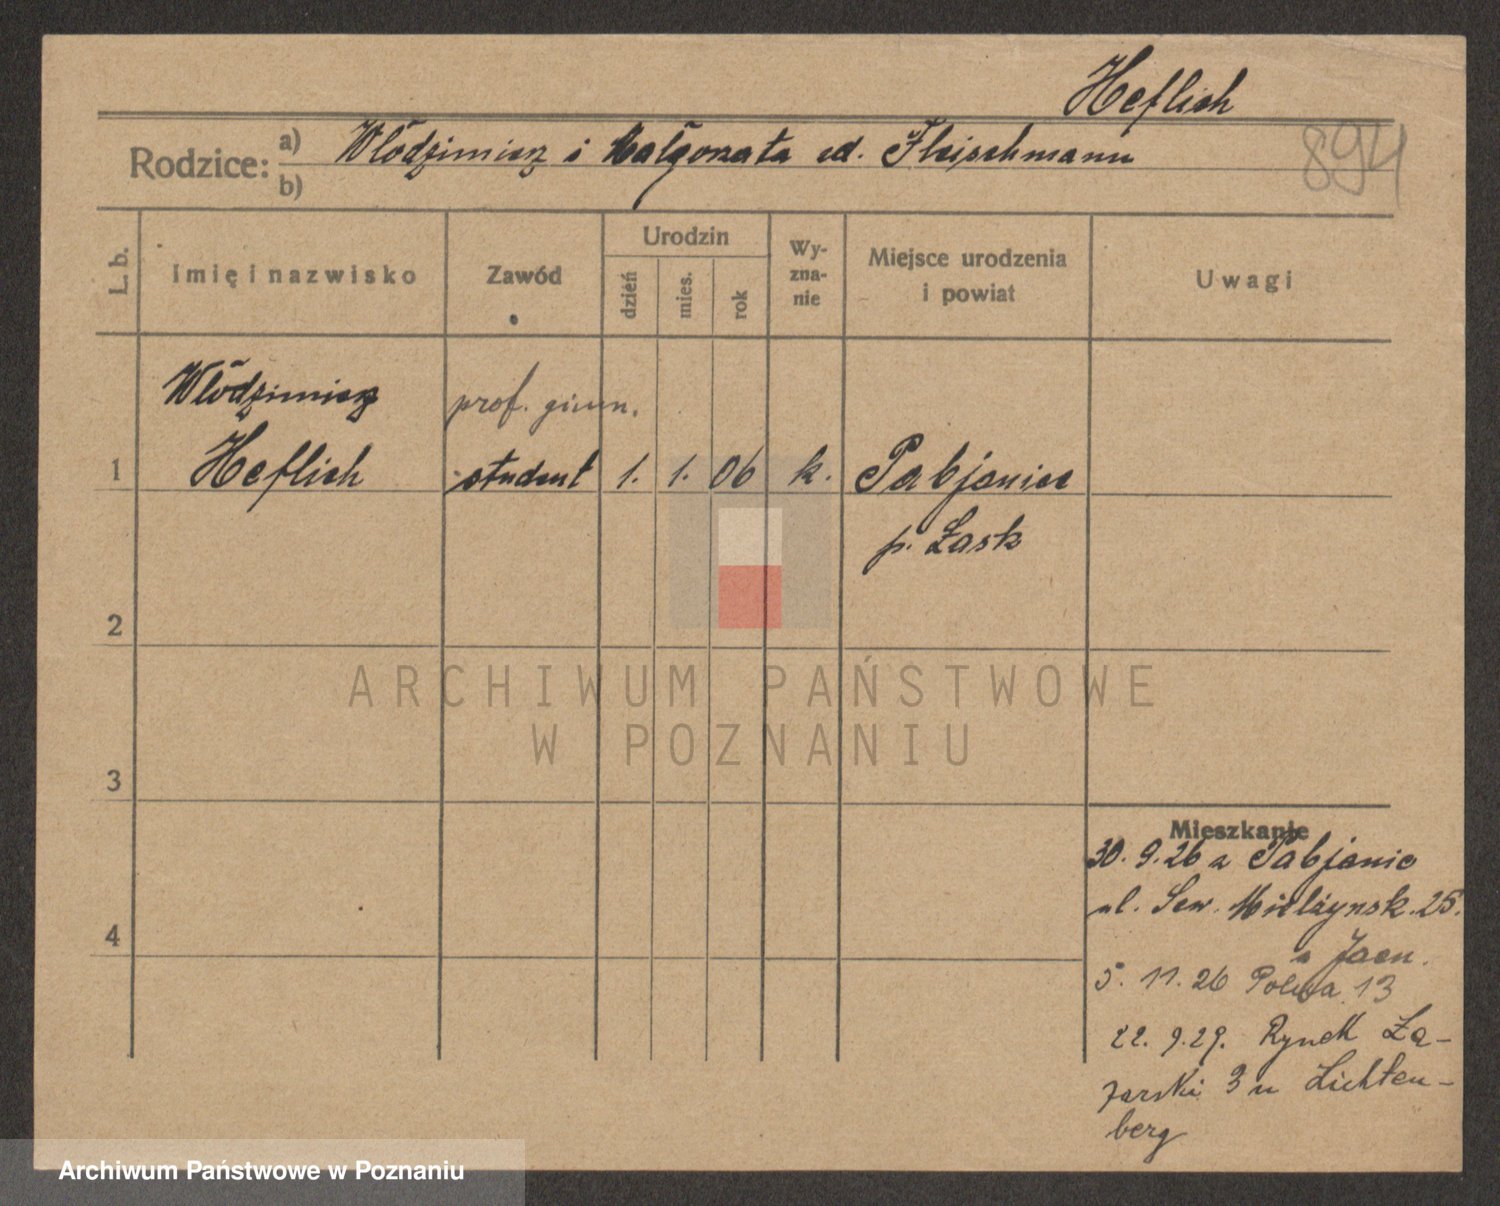 Heflich
894
Rodzice:
a) Włodzimierz i Małgorzata zd. Fleischmann
b)
L. b.
Imię i nazwisko
Zawód
Urodzin
dzień
mies.
rok
Wy-
zna-
nie
Miejsce urodzenia
i powiat
Uwagi
Włodzimierz
prof. gimn.
1 Heflich student 1. 1. 06 k. Pabjanice
p. Łask
2
3
4
ARCHIWUM PAŃSTWOWE
W POZNANIU
Mieszkanie
30. 9. 26 z Pabjanic
ul. Sew. Mielżynsk. 25.
5. 11. 26 Polna 13
22. 9. 29. Rynek Ła-
zarski 3 u Lichten-
berg
Archiwum Państwowe w Poznaniu